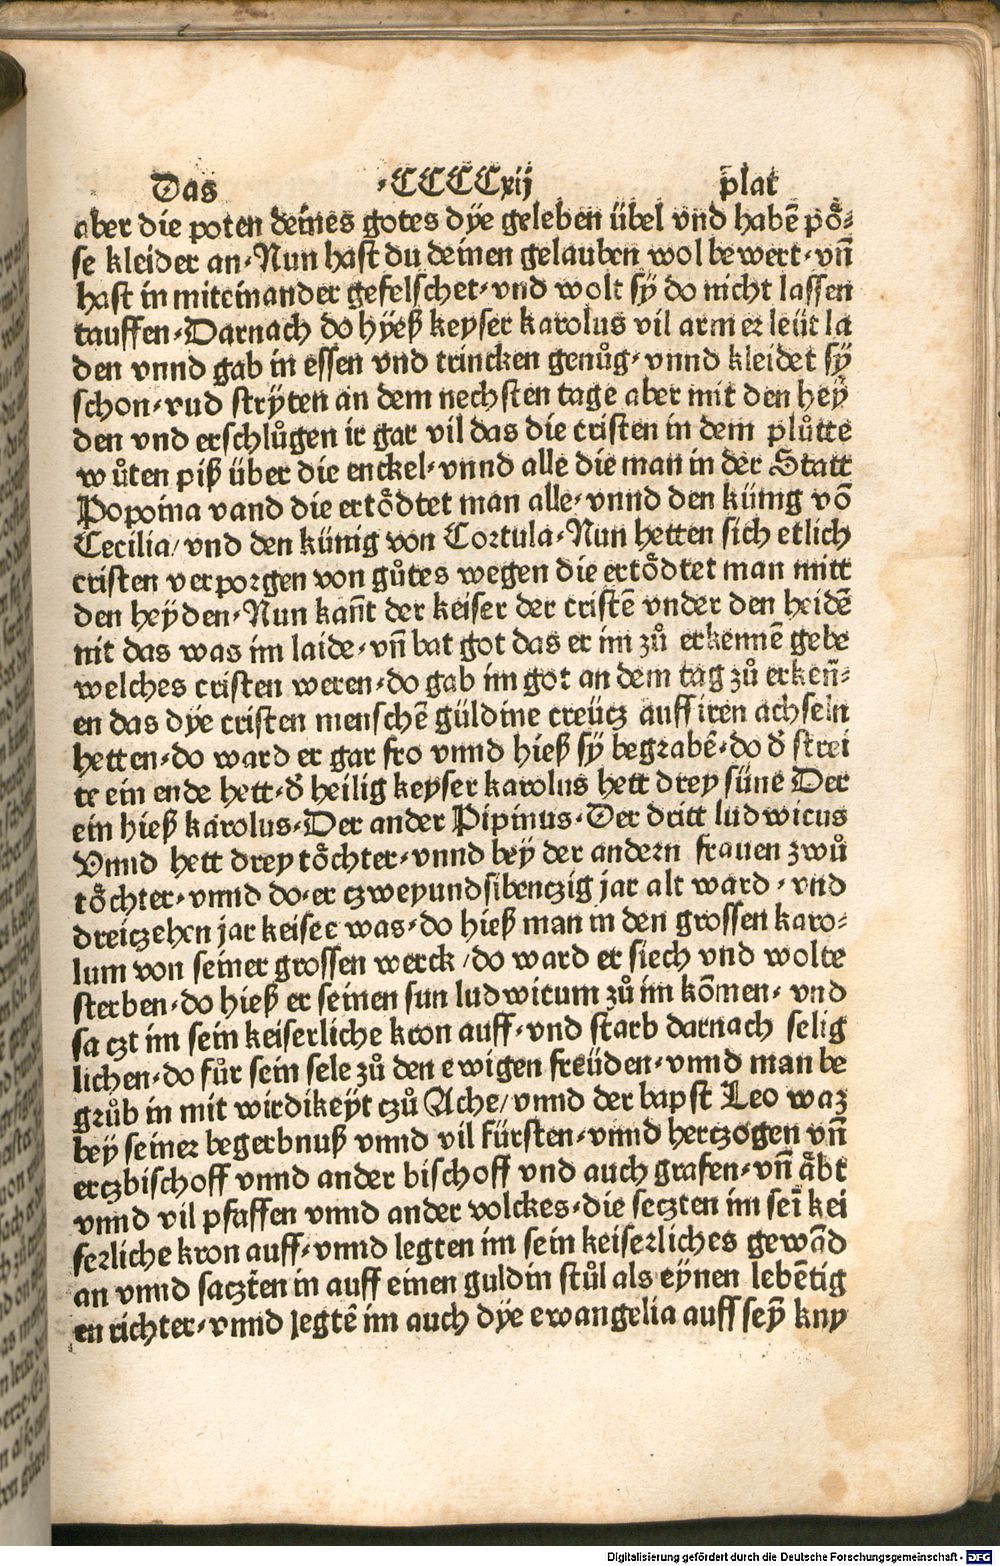 Das ·CCCCxij plat
aber die poten deines gotes dÿe geleben übel vnd habē pö-
se kleider an·Nun hast du deinen gelauben wol bewert·vñ
hast in miteinander gefelschet·vnd wolt sÿ do nicht lassen
tauffen·Darnach do hÿeß keyser karolus vil armer leüt la
den vnnd gab in essen vnd trincken genůg·vnnd kleidet sÿ
schon·vnd strÿten an dem nechsten tage aber mit den heÿ
den vnd erschlůgen ir gar vil das die cristen in dem plůtte
wůten piß über die enckel·vnnd alle die man in der Statt
Popoina vand die ertödtet man alle·vnnd den künig vō
Cecilia/vnd den künig von Cortula·Nun hetten sich etlich
cristen verporgen von gůtes wegen die ertödtet man mitt
den heÿden·Nun kañt der keiser der cristē vnder den heidē
nit das was im laide·vñ bat got das er im zů erkennē gebe
welches cristen weren·do gab im got an dem tag zů erkeñ-
en das dÿe cristen menschē güldine creütz auff iren achseln
hetten·do ward er gar fro vnnd hieß sÿ begrabē·do d̄ strei
te ein ende hett·d̄ heilig keyser karolus hett drey süne Der
ein hieß karolus·Der ander Pipinus·Der dritt ludwicus
Vnnd hett drey töchter·vnnd beÿ der andern frauen zwů
töchter·vnnd do·er czweyundsibenczig jar alt ward·vnd
dreiczehen jar keiser was·do hieß man in den grossen karo-
lum von seiner grossen werck/do ward er siech vnd wolte
sterben·do hieß er seinen sun ludwicum zů im kōmen·vnd
saczt im sein keiserliche kron auff·vnd starb darnach selig
lichen·do fůr sein sele zů den ewigen freüden·vnnd man be
grůb in mit wirdikeÿt czů Ache/vnnd der bapst Leo waz
beÿ seiner begerbnuß vnnd vil fürsten·vnnd herczogen vñ
erczbischoff vnnd ander bischoff vnd auch grafen·vñ äbt
vnnd vil pfaffen vnnd ander volckes·die seczten im seī kei
serliche kron auff·vnnd legten im sein keiserliches gewād
an vnnd saczten in auff einen guldin stůl als eÿnen lebētig
en richter·vnnd legtē im auch dÿe ewangelia auff seȳ kny
Digitalisierung gefördert durch die Deutsche Forschungsgemeinschaft - DFG